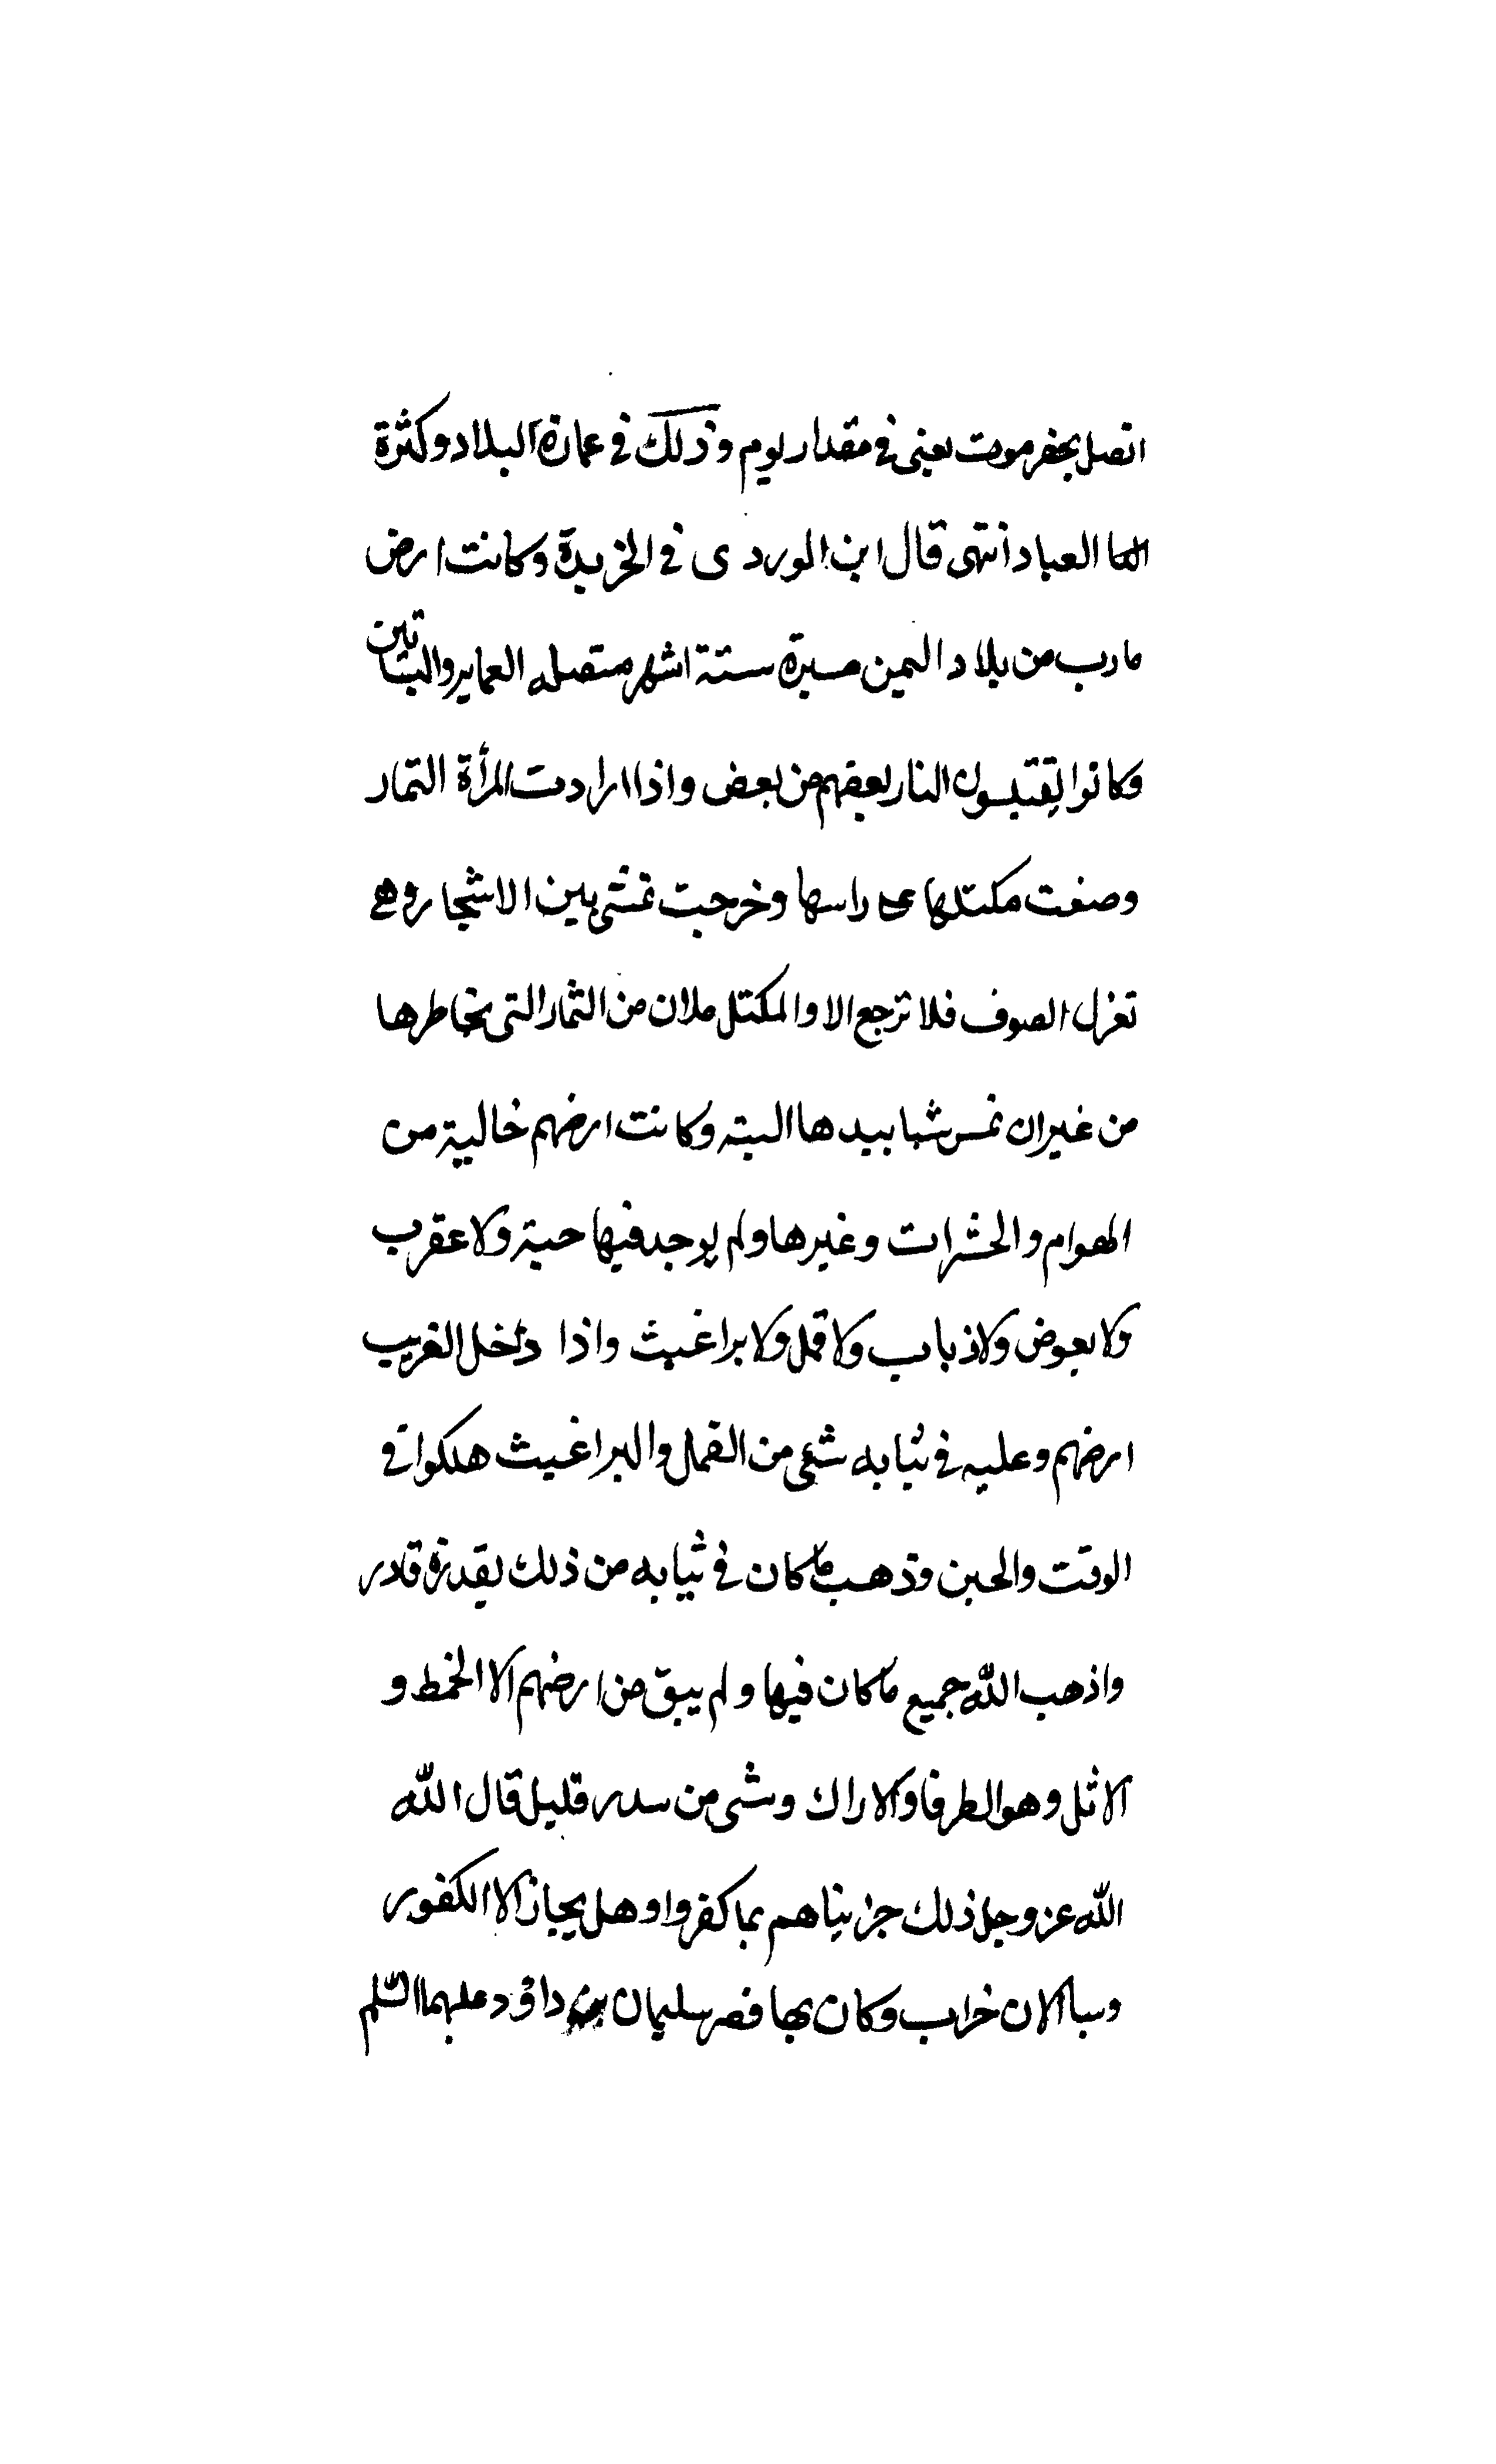 اتصل بحضرموت يعنى فى مقدار يوم وذلك فى عمارة البلاد وكثرة
العباد انتهى قال ابن الوردى فى الخريدة وكانت ارض
مارب من بلاد اليمن مسيرة ستة اشهر متصله العماير والبساتين
وكانوا يقتبسون النار بعضهم من بعض واذا ارادت المرأة الثمار
وضعت مكتلها على راسها وخرجت تمشى بين الاشجار وهى
تغزل الصوف فلا ترجع الا والمكتل ملان من الثمار التى بخاطرها
من غير ان تمس شيا بيدها البته وكانت ارضهم خالية من
الهوام والحشرات وغيرها ولم يوجد فيها حية ولا عقرب
ولا بعوض ولا ذباب ولا قمل ولا براغيث واذا دخل الغريب
ارضهم وعليه فى ثيابه شئ من القمل والبراغيث هلكوا فى
الوقت والحين وذهب ما كان فى ثيابه من ذلك بقدرة قادر
واذهب الله جميع ما كان فيها ولم يبق من ارضهم الا الخمط و
الاثل وهو الطرفا والاراك وشى من سدر قليل قال الله
الله عز وجل ذلك جزيناهم بما كفروا وهل يجاز الا الكفور
وسبا الان خراب وكان بها قصر سليمان بن داؤد عليهما السلم